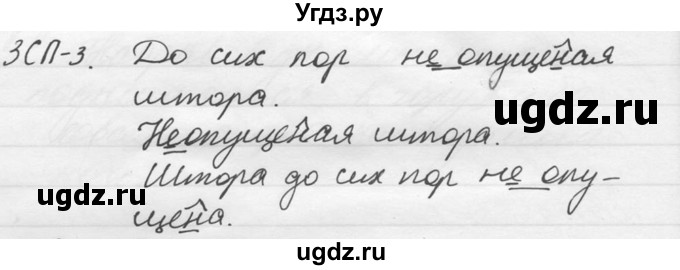 Угдз.ру
ЗСП-3. До сих пор не опущеная
штора.
ugdz.ru
Неопущеная штора.
ugdz.ru
Штора до сих пор не опу-
щена.
ugdz.ru
ugdz.ru